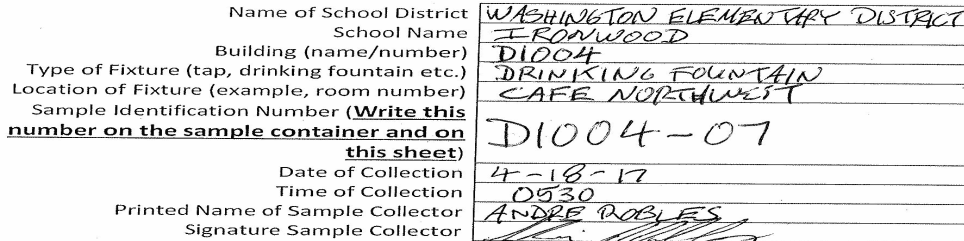 Name of School District WASHINGTON ELEMENTARY DISTRICT
School Name IRONWOOD
Building (name/number) D1004
Type of Fixture (tap, drinking fountain etc.) DRINKING FOUNTAIN
Location of Fixture (example, room number) CAFE NORTHWEST
Sample Identification Number (Write this
number on the sample container and on
this sheet) D1004-07
Date of Collection 4-18-17
Time of Collection 0530
Printed Name of Sample Collector ANDRE ROBLES
Signature Sample Collector